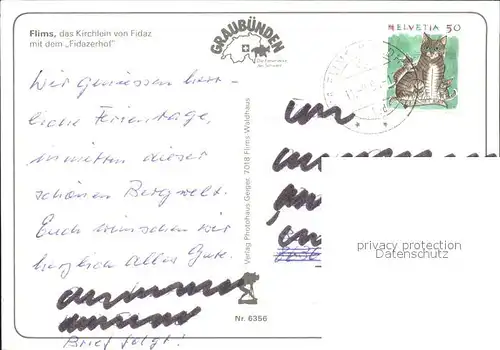 Flims, das Kirchlein von Fidaz
mit dem „Fidazerhof"
GRAUBÜNDEN
Die Ferienecke
der Schweiz
HELVETIA 50
Wir geniessen herr-
liche Ferientage,
inmitten dieser
schönen Bergwelt.
Euch wünschen wir
herzlich Alles Gute.
Brief folgt!
Verlag Photohaus Geiger, 7018 Flims-Waldhaus
Nr. 6356
privacy protection
Datenschutz